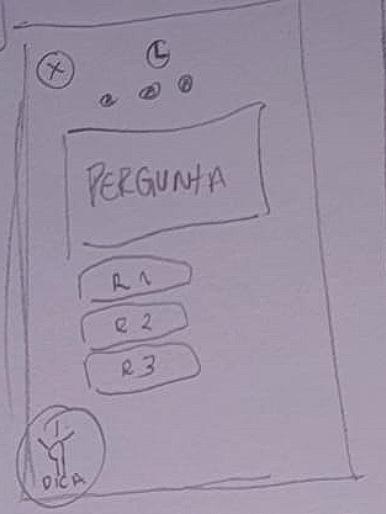 X
PERGUNTA
R 1
R 2
R 3
DICA